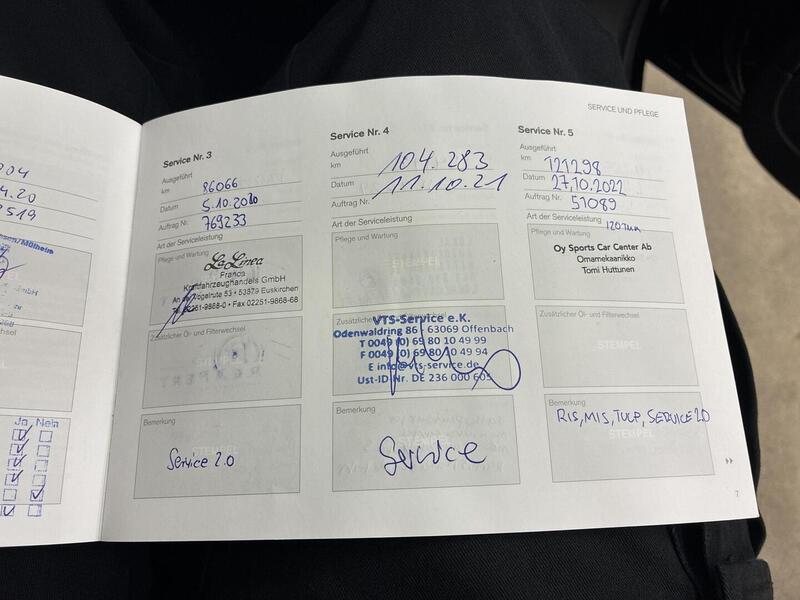 SERVICE UND PFLEGE
Service Nr. 3
Ausgeführt
km 86066
Datum 5.10.2020
Auftrag Nr. 769233
Art der Serviceleistung
Pflege und Wartung
La Linea
Franca
Kraftfahrzeughandels GmbH
53879 Euskirchen
02251-9868-0 • Fax 02251-9868-68
Zusätzlicher Öl- und Filterwechsel
Bemerkung
Service 2.0
Service Nr. 4
Ausgeführt
km 104.283
Datum 11.10.21
Auftrag Nr.
Art der Serviceleistung
Pflege und Wartung
STEMPEL
Zusätzlicher
VTS-Service e.K.
Odenwaldring 86 63069 Offenbach
T 0049 (0) 69 80 10 49 99
F 0049 (0) 69 80 10 49 94
E info@vts-service.de
Ust-ID-Nr. DE 236 000 605
Bemerkung
Service
Service Nr. 5
Ausgeführt
km 121298
Datum 27.10.2022
Auftrag Nr. 51089
Art der Serviceleistung
Pflege und Wartung
Oy Sports Car Center Ab
Omamekaanikko
Tomi Huttunen
Zusätzlicher Öl- und Filterwechsel
STEMPEL
Bemerkung
RIS, MIS, TULP, SERVICE 2.0
STEMPEL
7
Ja Nein